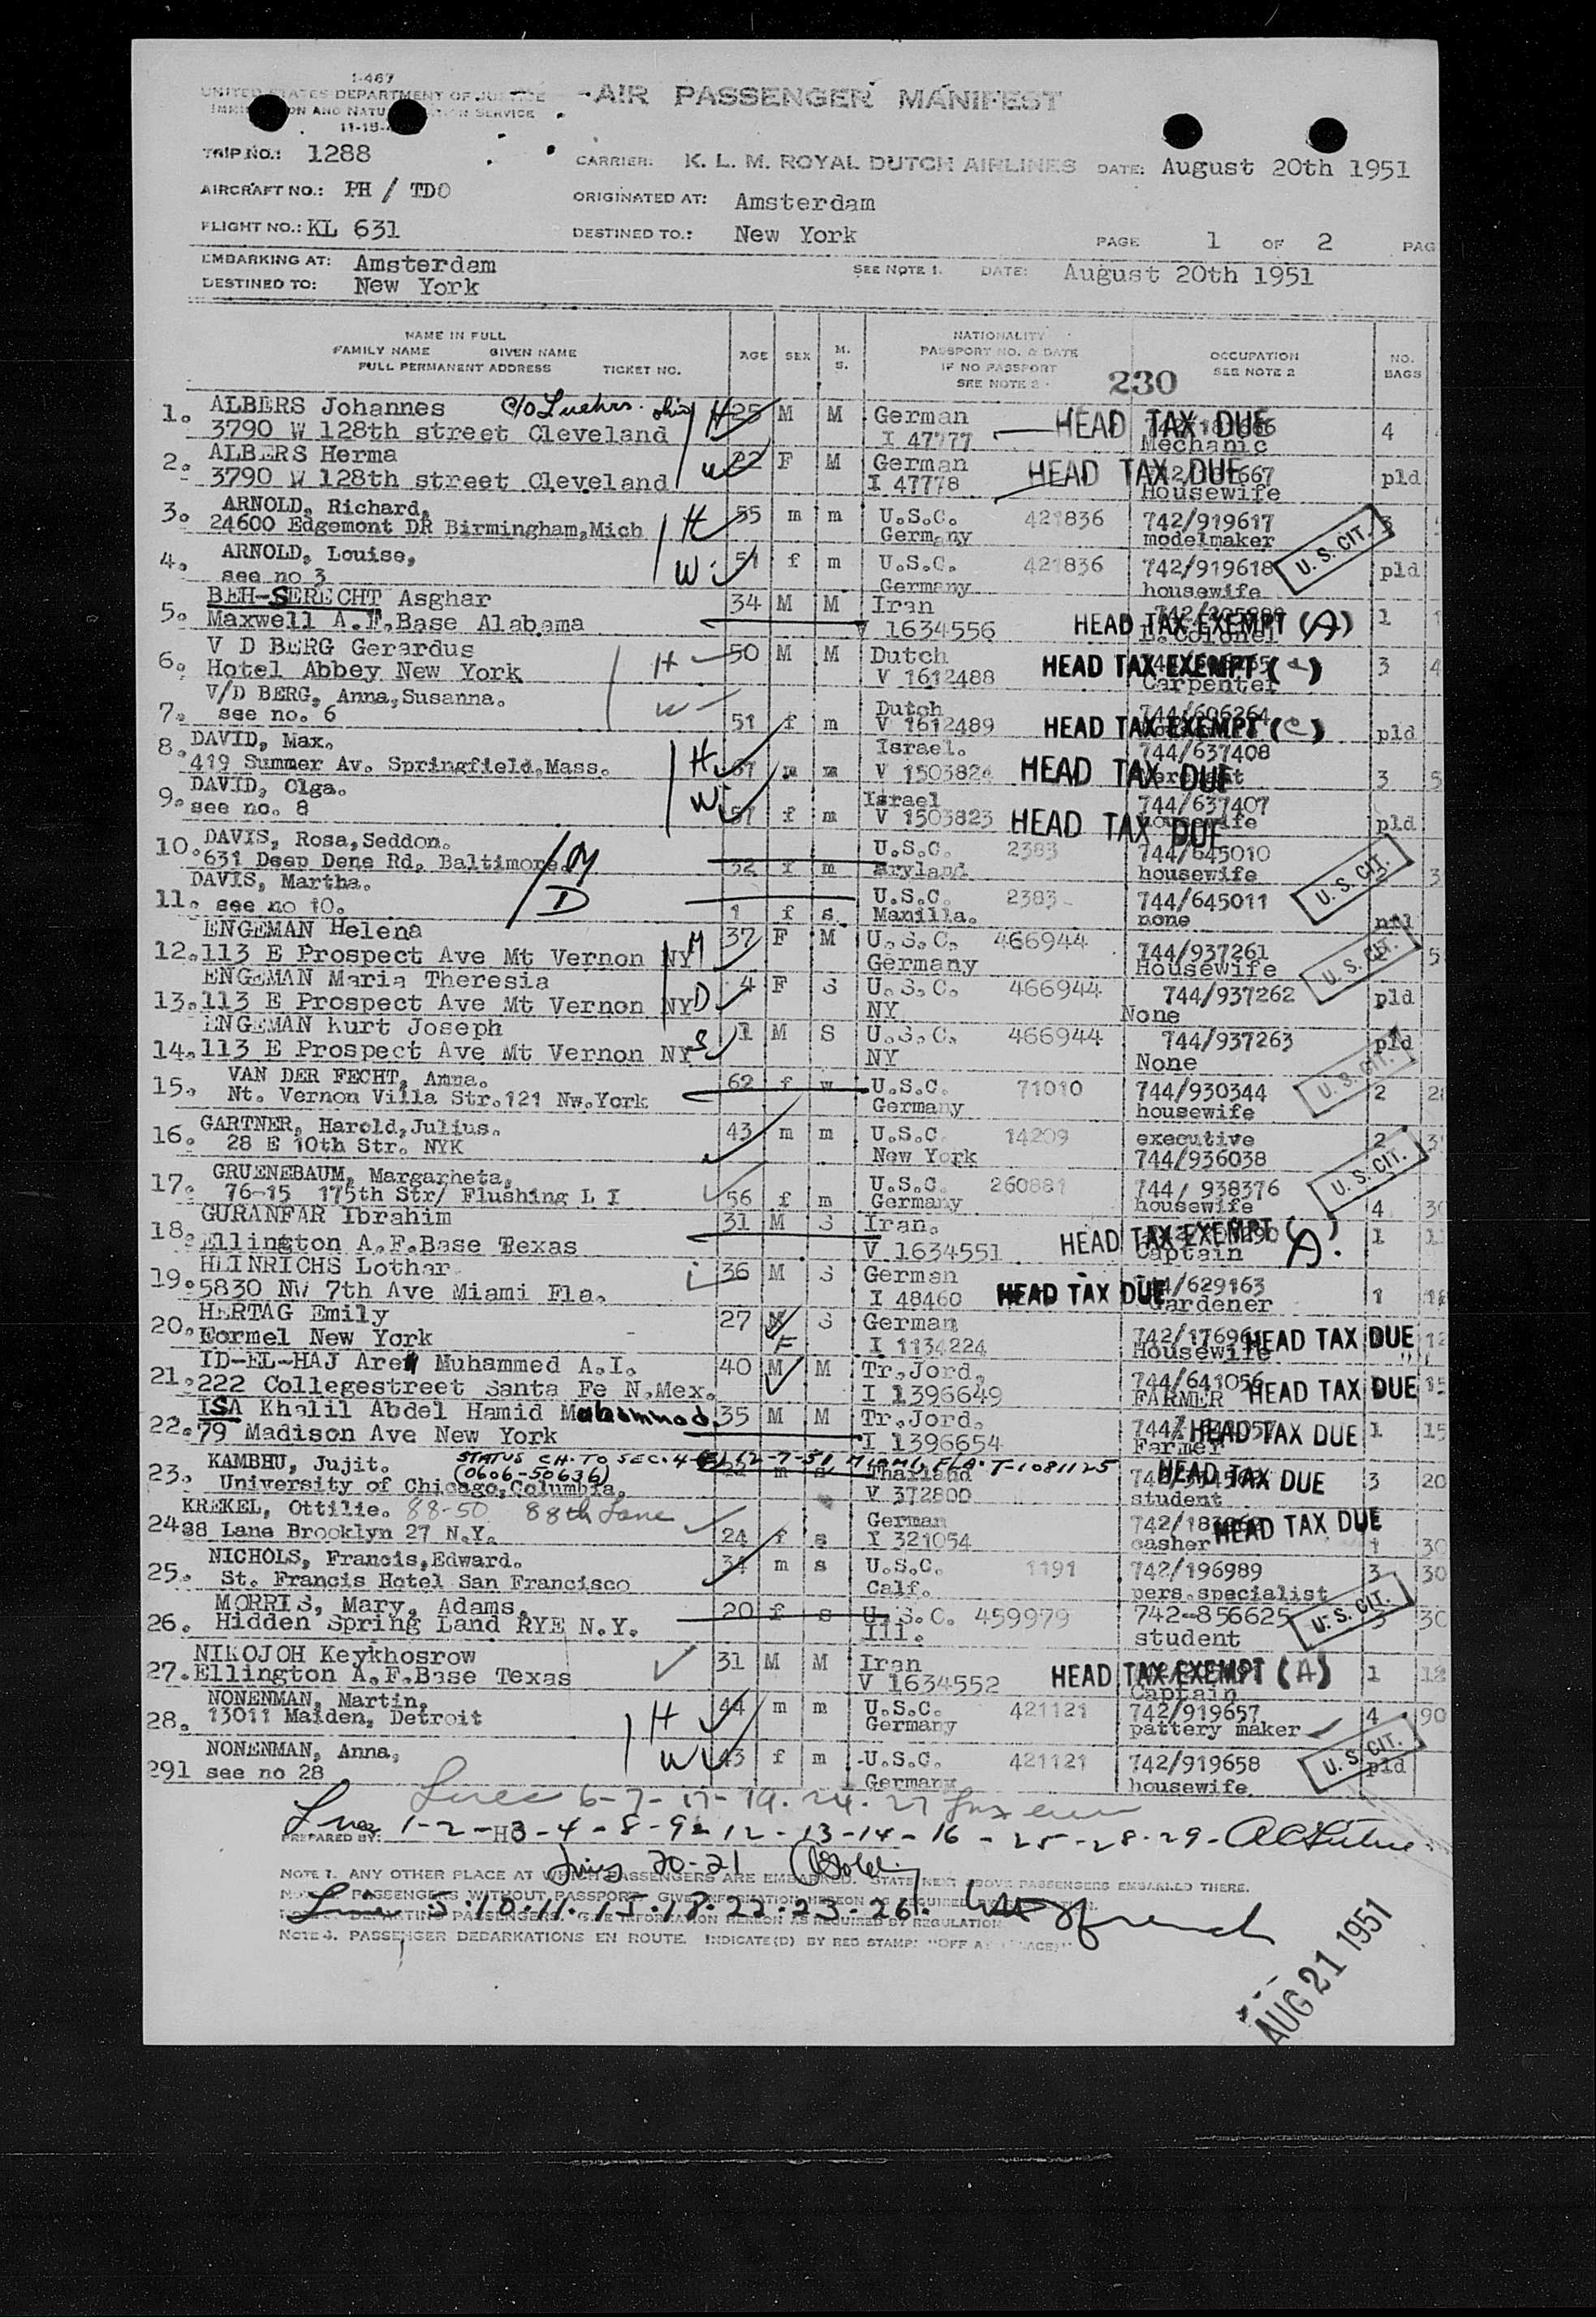 I-467
UNITED STATES DEPARTMENT OF JUSTICE
AIR PASSENGER MANIFEST
SERVICE
TRIP NO.: 1288
CARRIER: K. L. M. ROYAL DUTCH AIRLINES DATE: August 20th 1951
AIRCRAFT NO.: PH / TDO
ORIGINATED AT: Amsterdam
FLIGHT NO.: KL 631
DESTINED TO.: New York
PAGE 1 OF 2 PAG
EMBARKING AT: Amsterdam
SEE NOTE 1. DATE: August 20th 1951
DESTINED TO: New York
NAME IN FULL
FAMILY NAME GIVEN NAME
FULL PERMANENT ADDRESS TICKET NO.
AGE SEX M. S.
NATIONALITY
PASSPORT NO. & DATE
IF NO PASSPORT
SEE NOTE 2
230
OCCUPATION
SEE NOTE 2
NO. BAGS
1. ALBERS Johannes c/o Luehrs. ohio H 25 M M German HEAD TAX DUE 4
3790 W 128th street Cleveland I 47777 Mechanic
2. ALBERS Herma W 22 F M German HEAD TAX DUE pld
3790 W 128th street Cleveland I 47778 Housewife
3. ARNOLD, Richard, H 55 m m U.S.C. 421836 742/919617
24600 Edgemont DR Birmingham,Mich Germany modelmaker
U. S. CIT.
4. ARNOLD, Louise, W 51 f m U.S.C. 421836 742/919618 pld
see no 3 Germany housewife
5. BEH-SERECHT Asghar 34 M M Iran 1
Maxwell A.F.Base Alabama V 1634556 HEAD TAX EXEMPT (A)
6. V D BERG Gerardus H 50 M M Dutch HEAD TAX EXEMPT 3 4
Hotel Abbey New York V 1612488 Carpenter
7. V/D BERG, Anna,Susanna. W 51 f m Dutch 744/606264 pld
see no. 6 V 1612489 HEAD TAX EXEMPT (C)
8. DAVID, Max. H m m Israel. 744/637408 3 5
419 Summer Av. Springfield,Mass. V 1503824 HEAD TAX DUE
9. DAVID, Olga. W 57 f m Israel 744/637407 pld
see no. 8 V 1503823 HEAD TAX DUE housewife
10. DAVIS, Rosa,Seddon. M 32 f m U.S.C. 2383 744/645010 3
631 Deep Dene Rd, Baltimore. aryland housewife
U. S. CIT.
11. DAVIS, Martha. D 1 f s U.S.C. 2383 744/645011
see no 10. Manilla. none
12. ENGEMAN Helena M 37 F M U.S.C. 466944 744/937261 5
113 E Prospect Ave Mt Vernon NY Germany Housewife
U. S. CIT.
13. ENGEMAN Maria Theresia D 4 F S U.S.C. 466944 744/937262 pld
113 E Prospect Ave Mt Vernon NY NY None
14. ENGEMAN Kurt Joseph S 1 M S U.S.C. 466944 744/937263 pld
113 E Prospect Ave Mt Vernon NY NY None
U. S. CIT.
15. VAN DER FECHT, Anna. 62 f w U.S.C. 71010 744/930344 2
Nt. Vernon Villa Str.121 Nw.York Germany housewife
16. GARTNER, Harold,Julius. 43 m m U.S.C. 14209 executive 2
28 E 10th Str. NYK New York 744/936038
U. S. CIT.
17. GRUENEBAUM, Margarheta, 56 f m U.S.C. 260881 744/ 938376 4
76-15 175th Str/ Flushing L I Germany housewife
18. GURANFAR Ibrahim 31 M S Iran. HEAD TAX EXEMPT (A). 1
Ellington A.F.Base Texas V 1634551 Captain
19. HEINRICHS Lothar 36 M S German 744/629163 1
5830 NW 7th Ave Miami Fla. I 48460 HEAD TAX DUE Gardener
20. HERTAG Emily 27 F S German HEAD TAX DUE 12
Formel New York I 1134224 Housewife
21. ID-EL-HAJ Aref Muhammed A.I. 40 M M Tr.Jord. 744/641056 HEAD TAX DUE 15
222 Collegestreet Santa Fe N.Mex. I 1396649 FARMER
22. ISA Khalil Abdel Hamid Mohammad 35 M M Tr.Jord. HEAD TAX DUE 1 15
79 Madison Ave New York I 1396654 Farmer
STATUS CH. TO SEC. 4 12-7-51 MIAMI, FLA. T-1081125
23. KAMBHU, Jujit. (0606-50636) m s Thailand HEAD TAX DUE 3 20
University of Chicago,Columbia. V 372800 student
24. KREKEL, Ottilie. 88-50 88th Lane 24 f s German HEAD TAX DUE 1 30
88 Lane Brooklyn 27 N.Y. I 321054 casher
25. NICHOLS, Francis,Edward. 34 m s U.S.C. 1191 742/196989 3 30
St. Francis Hotel San Francisco Calf. pers.specialist
U. S. CIT.
26. MORRIS, Mary, Adams, 20 f s U.S.C. 459979 742-856625 3 30
Hidden Spring Land RYE N.Y. Ill. student
27. NIKOJOH Keykhosrow 31 M M Iran HEAD TAX EXEMPT (A) 1 18
Ellington A.F.Base Texas V 1634552 Captain
28. NONENMAN, Martin, H 44 m m U.S.C. 421121 742/919657 4 90
13011 Maiden, Detroit Germany pattery maker
U. S. CIT.
291 NONENMAN, Anna, W 43 f m U.S.C. 421121 742/919658 pld
see no 28 Germany housewife
Lines 6-7-17-19-24-27
PREPARED BY: Lines 1-2-3-4-8-9-12-13-14-16-25-28-29-
Lines 20-21
NOTE 1. ANY OTHER PLACE AT WHICH PASSENGERS ARE EMBARKED. STATE NEXT ABOVE PASSENGERS EMBARKED THERE.
PASSENGERS WITHOUT PASSPORT, GIVE INFORMATION HEREON AS REQUIRED
Lines 5.10.11.15.18.22.23.26.
DEPARTING PASSENGERS. GIVE INFORMATION HEREON AS REQUIRED BY REGULATION
NOTE 4. PASSENGER DEBARKATIONS EN ROUTE. INDICATE(D) BY RED STAMP: "OFF AT (PLACE)"
AUG 21 1951